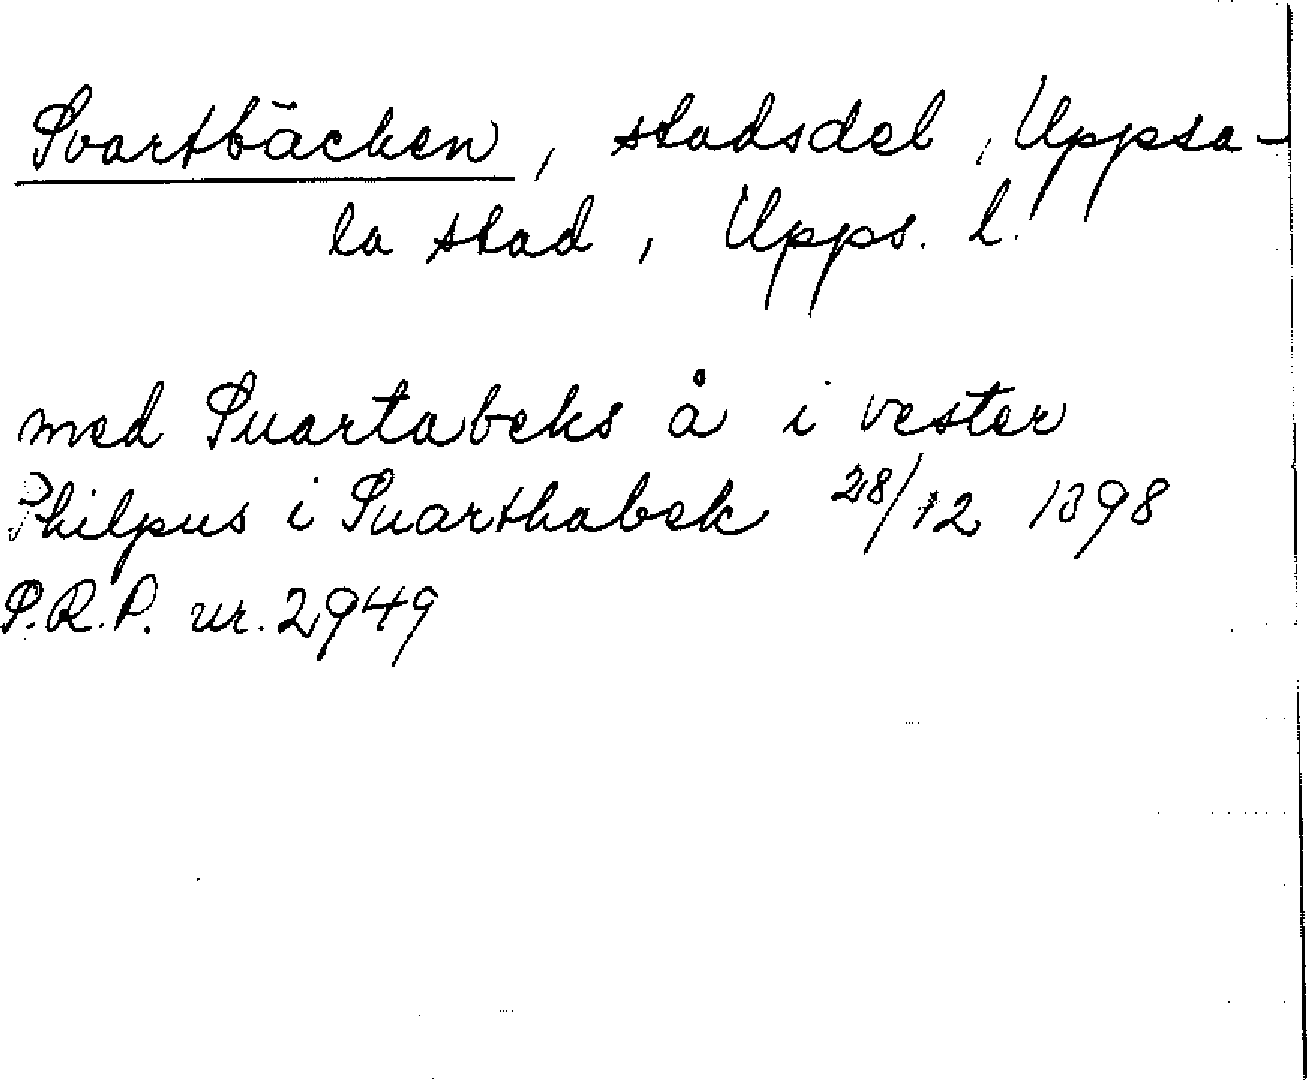 Svartbäcken, stadsdel, Uppsa-
la stad, Upps. l.
med Suartabeks å i vester
Philpus i Suarthabek 28/12 1398
S.R.P. nr. 2949